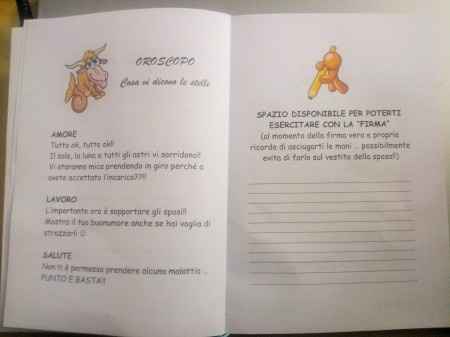 OROSCOPO
Cosa vi dicono le stelle
AMORE
Tutto ok, tutto ok!!
Il sole, la luna e tutti gli astri vi sorridono!!
Vi staranno mica prendendo in giro perché a
avete accettato l'incarico??!!
LAVORO
L'importante ora è sopportare gli sposi!!
Mostra il tuo buonumore anche se hai voglia di
strozzarli ☺
SALUTE
Non ti è permesso prendere alcuna malattia ..
PUNTO E BASTA!!
SPAZIO DISPONIBILE PER POTERTI
ESERCITARE CON LA "FIRMA"
(al momento della firma vera e propria
ricorda di asciugarti le mani ... possibilmente
evita di farlo sul vestito della sposa!!)